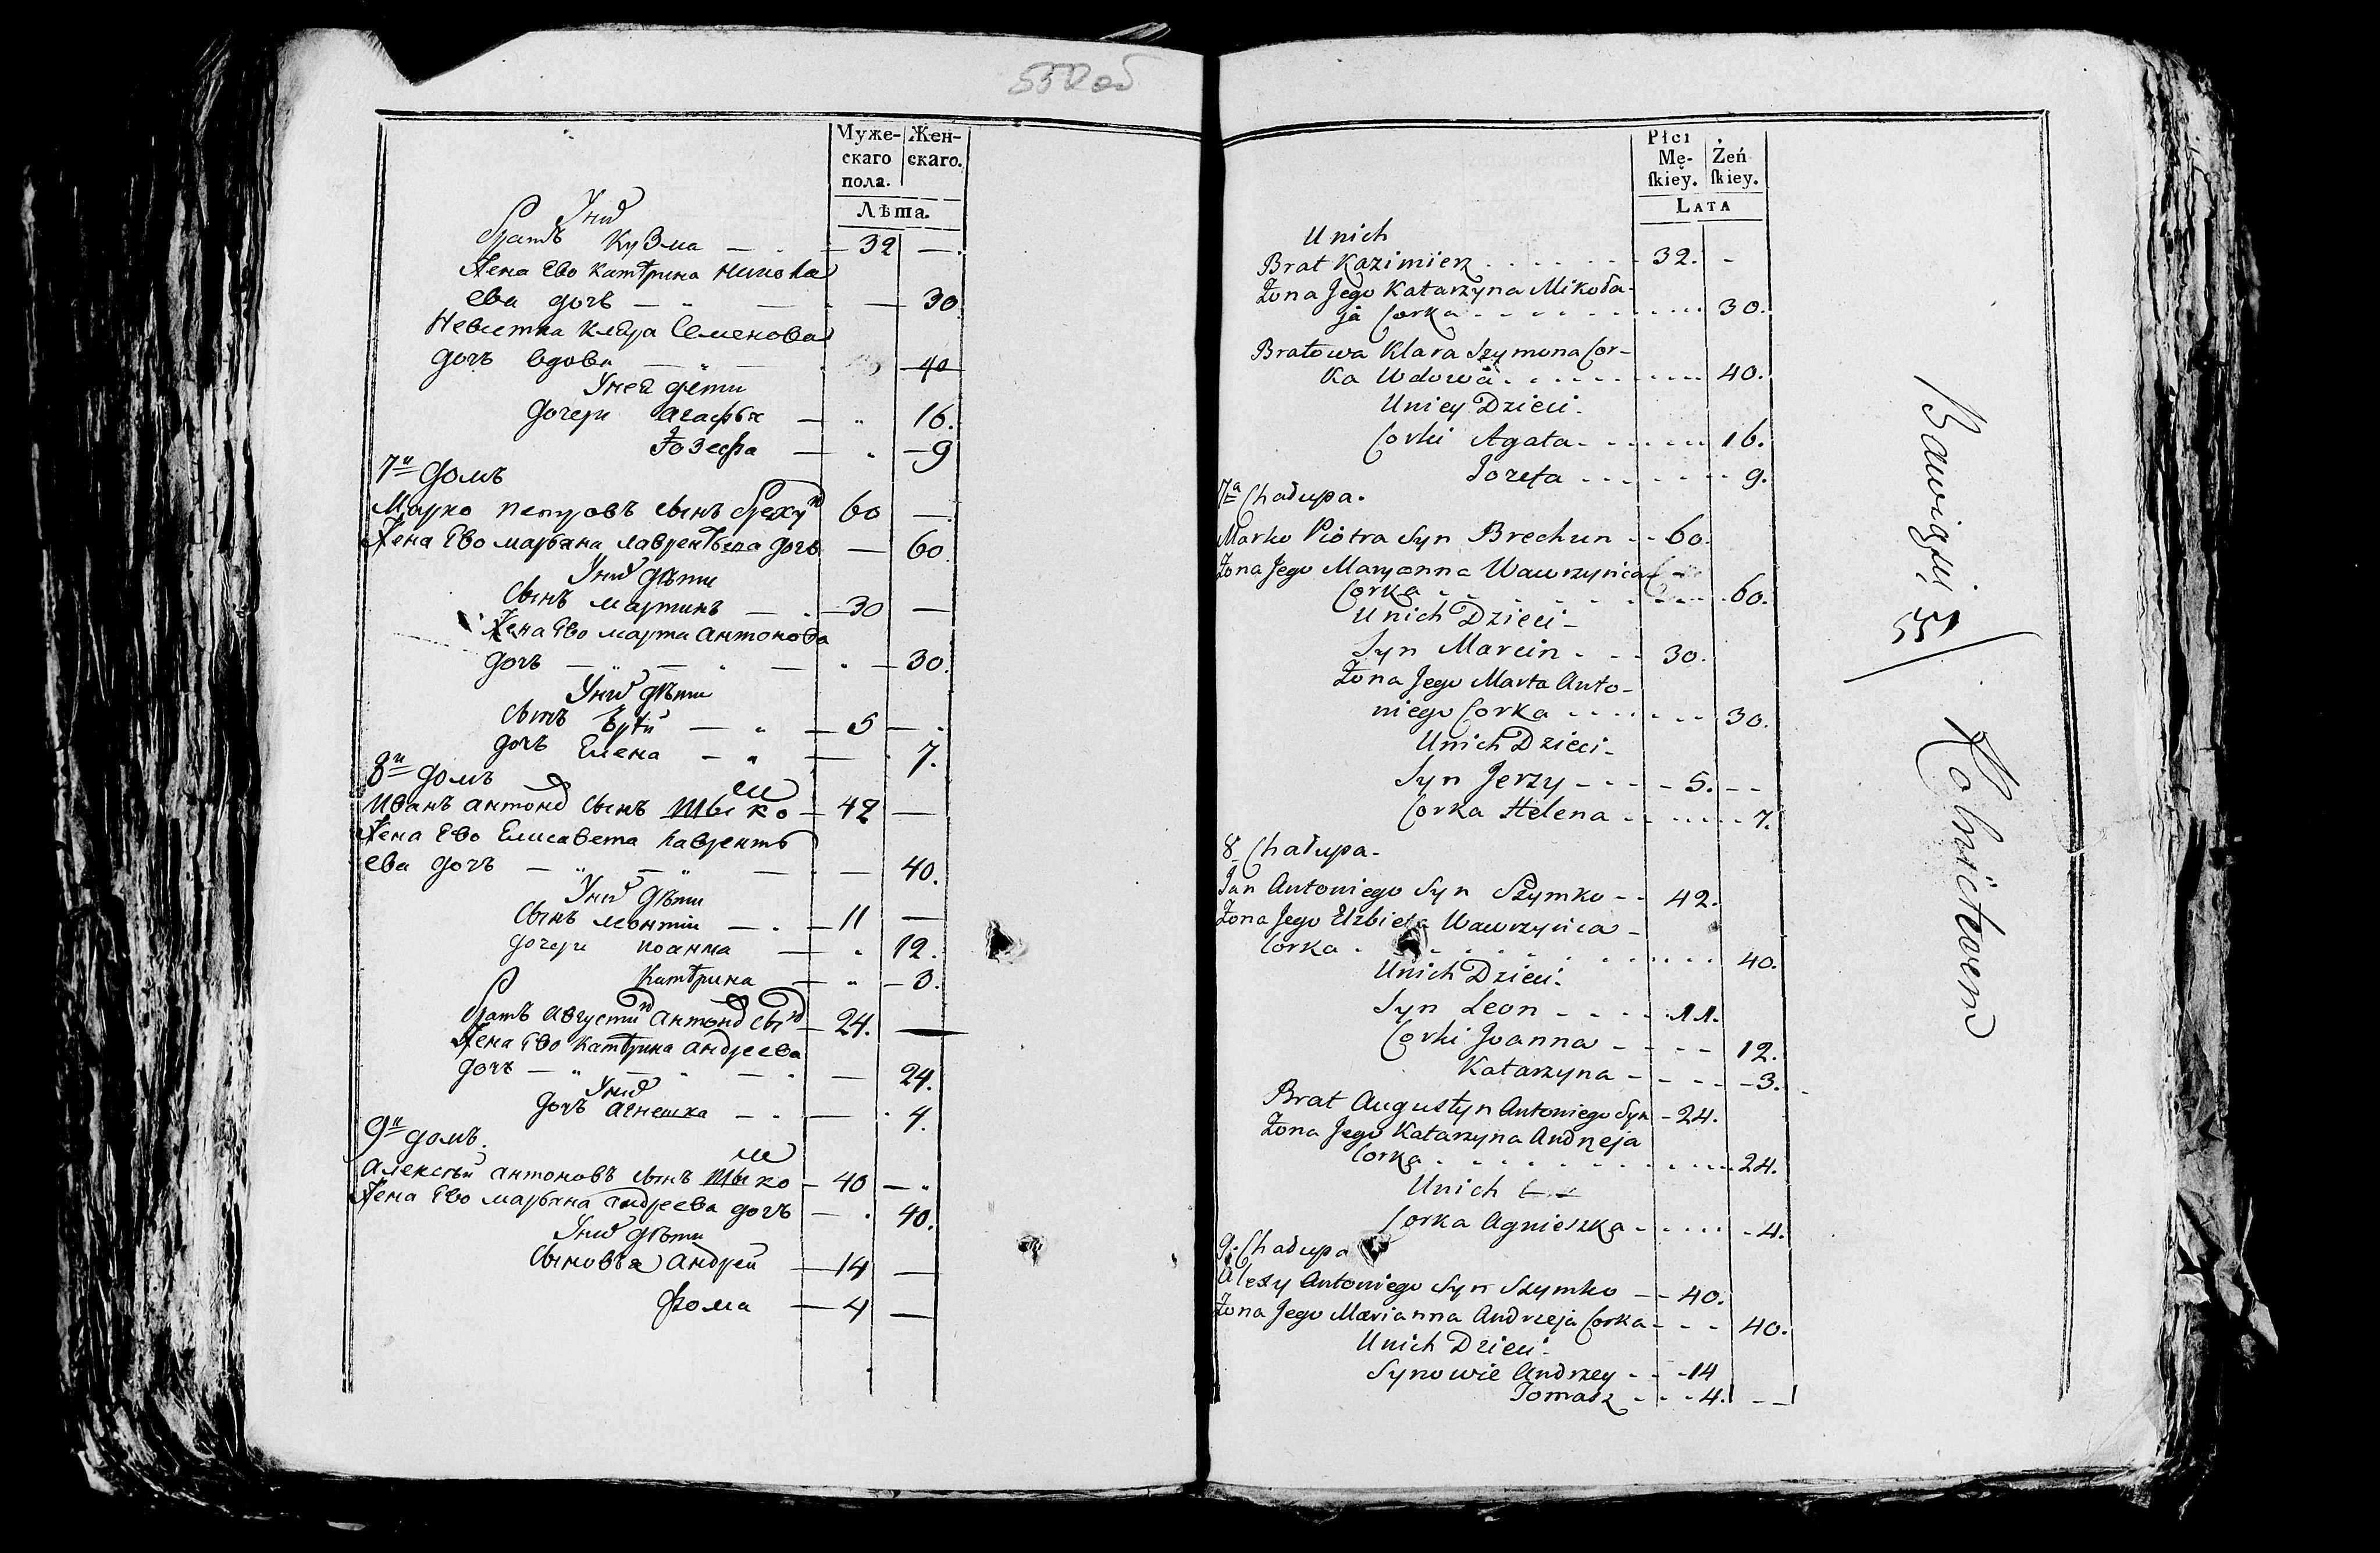 552 об
Муже- Жен-
скаго скаго.
пола.
Лѣта.
У них
братъ Кузма — 32 —
Жена Ево Катѣрина Никола
ева дочь — 30.
Невѣстка Клара Семенова
дочь вдова — 40
У ней дѣти
дочери Агафья — 16.
Іозефа — 9
7й домъ
Марко Петровъ сынъ Брехун 60 —
Жена Ево Марьяна Лаврентьева дочь — 60
У них дѣти
Сынъ Мартинъ — 30 —
Жена Ево Марта Антонова
дочь — 30.
У них дѣти
сынъ Юрій — 5 —
дочь Елена — 7.
8й домъ
ш
Иванъ Антонов сынъ Шымко — 42 —
Жена Ево Елисавета Лавренть
ева дочь — 40.
У них дѣти
Сынъ Леонтій — 11 —
дочери Иоанна — 12.
Катѣрина — 3.
братъ Августин Антонов сын — 24. —
Жена Ево Катѣрина Андреева
дочь — 24.
У них
дочь Агнешка — 4.
9й домъ.
ш
Алексѣй Антоновъ сынъ Шымко — 40 —
Жена Ево Марьяна Андреева дочь — 40.
У них дѣти
Сыновья Андрей — 14 —
Фома — 4 —
Płci
Mę- Żeń
ſkiey. ſkiey.
LATA
Unich
Brat Kazimierz 32. -
Żona Jego Katarzyna Mikoła-
ja Corka 30.
Bratowa Klara Szymona Cor-
ka Wdowa 40.
Uniey Dzieci.
Corki Agata 16.
Jozefa 9.
7a Chałupa.
Marko Piotra Syn Brechun - - 60.
Żona Jego Maryanna Wawrzyńca
Corka 60.
Unich Dzieci -
Syn Marcin - - - 30.
Żona Jego Marta Anto-
niego Corka 30.
Unich Dzieci -
Syn Jerzy - - - - 5. - -
Corka Helena 7.
8 Chałupa.
Jan Antoniego Syn Szymko - - 42.
Żona Jego Elzbieta Wawrzyńca -
Corka 40.
Unich Dzieci.
Syn Leon - - - - 11.
Corki Joanna - - - - 12.
Katarzyna - - - - - 3.
Brat Augustyn Antoniego Syn - 24.
Żona Jego Katarzyna Andrzeja
Corka 24.
Unich
Corka Agnieszka - 4.
9. Chałupa
Alexy Antoniego Syn Szymko - - 40.
Żona Jego Marianna Andrzeja Corka - - - 40.
Unich Dzieci.
Synowie Andrzey - - - 14
Tomasz - - - 4. - -